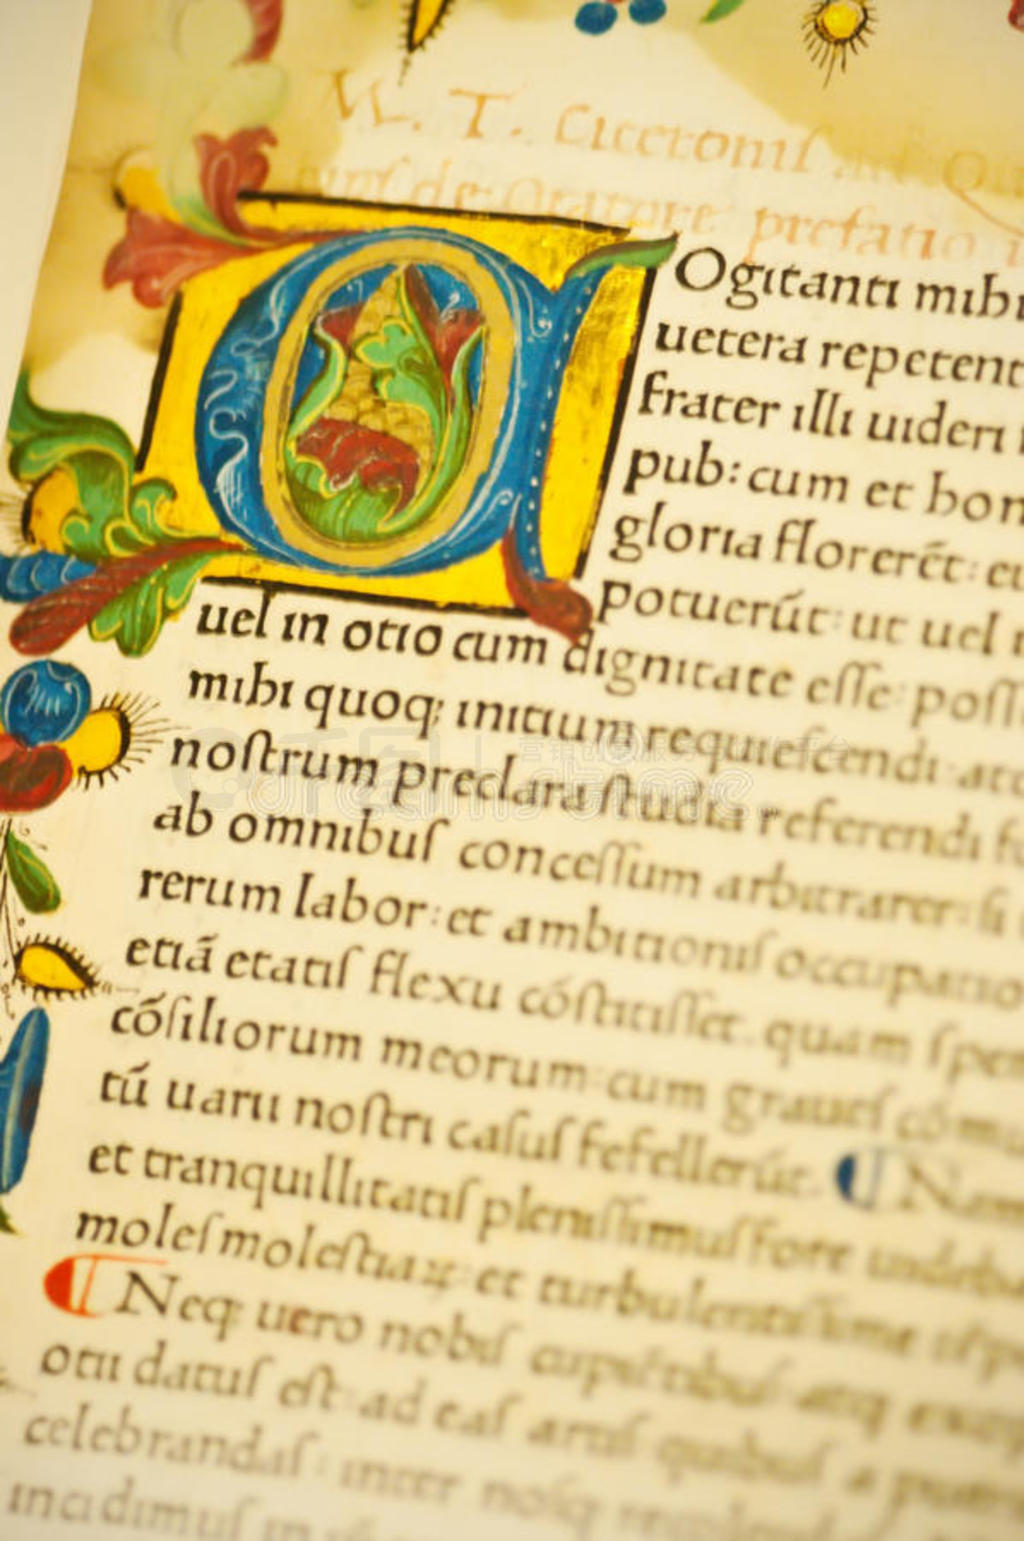 M. T. Ciceroniſ ad Qui
tuſ de Oratore prefatio
Ogitanti mihi
uetera repetent
frater illi uideri
pub: cum et bon
gloria florerēt: eu
potuerūt: ut uel
uel in otio cum dignitate eſſe: poſſ
mihi quoq; initium requieſcendi: atq
noſtrum preclara ſtudia referendi fo
ab omnibuſ conceſſum arbitrarer: ſi
rerum labor: et ambitioniſ occupatio
etiā etatiſ flexu cōſtitiſſet. quam ſpem
cōſiliorum meorum: cum graueſ cōmu
tū uarii noſtri caſuſ fefellerūt. Nam
et tranquillitatiſ pleniſſimuſ fore uideba
moleſ moleſtiaꝝ: et turbulentiſſime
Neq; uero nobiſ cupiētibuſ atq;
otii datuſ eſt: ad eaſ artiſ quibuſ a
celebrandaſ: inter noſq;
incidimuſ in